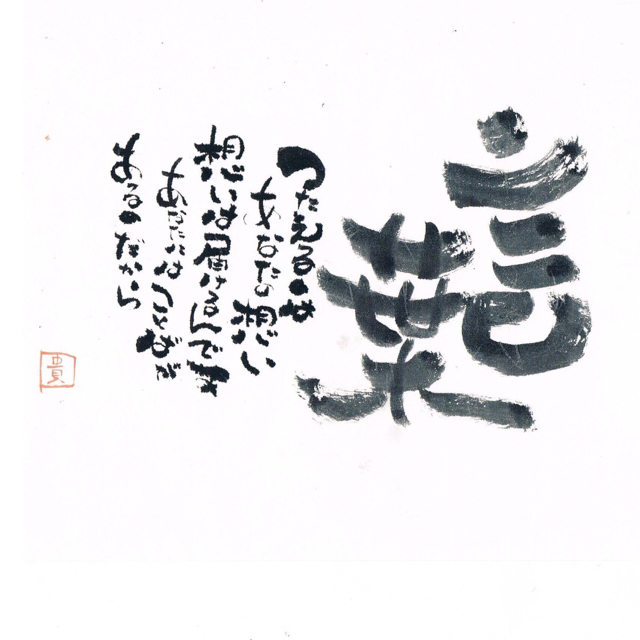 言葉
つたえるのは
あなたの想い
想いは届けるんです
あなたにはことばが
あるのだから
貴